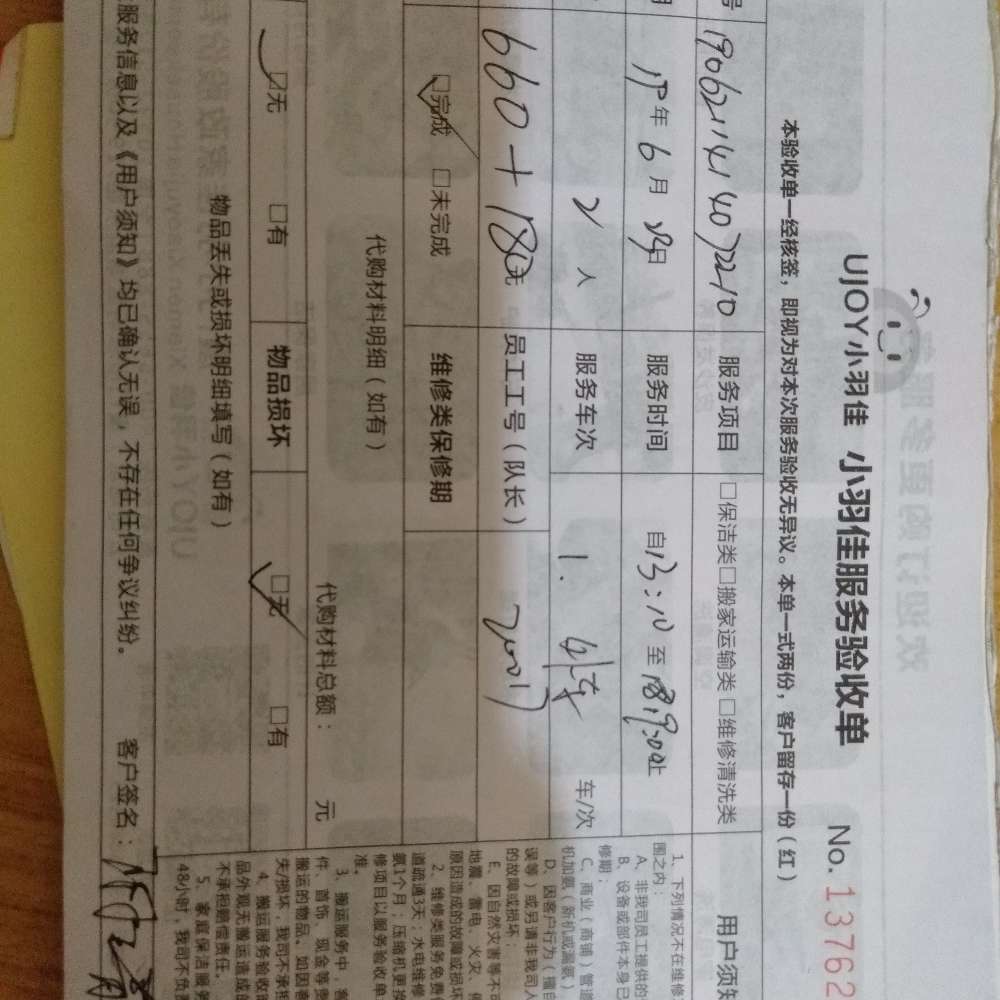 UJOY小羽佳 小羽佳服务验收单 No. 13762
本验收单一经核签，即视为对本次服务验收无异议。本单一式两份，客户留存一份（红）
号 1906211414072210 服务项目 □保洁类□搬家运输类□维修清洗类
19年6月29日 服务时间 自13:10至 19:00止
2人 服务车次 1. 车/次
660+180元 员工工号（队长） 20017
☑完成 □未完成 维修类保修期
代购材料明细（如有） 代购材料总额： 元
☑无 □有 物品损坏 ☑无 □有
物品丢失或损坏明细填写（如有）
服务信息以及《用户须知》均已确认无误，不存在任何争议纠纷。 客户签名：
用户须知
1、下列情况不在维修
围之内：
A、非我司员工提供的
B、设备或部件本身已
修期；
C、商业（商铺）管道
机加氨（新机或漏氨）
D、因客户行为（擅自
误等）或另请非我司人
的故障或损坏；
E、因自然灾害等不可
地震、雷电、火灾、停
原因造成的故障或损坏
2、维修类服务免费
道疏通3天；水电维修
氨1个月；压缩机更换
修项目以服务验收单
准。
3、搬运服务中，客
件、首饰、现金等贵
搬运的物品、如因客
失/损坏，我司不承担
4、搬运服务验收时
品外观无搬运造成的
不承担赔偿责任。
5、家庭保洁服务
48小时，我司不负责